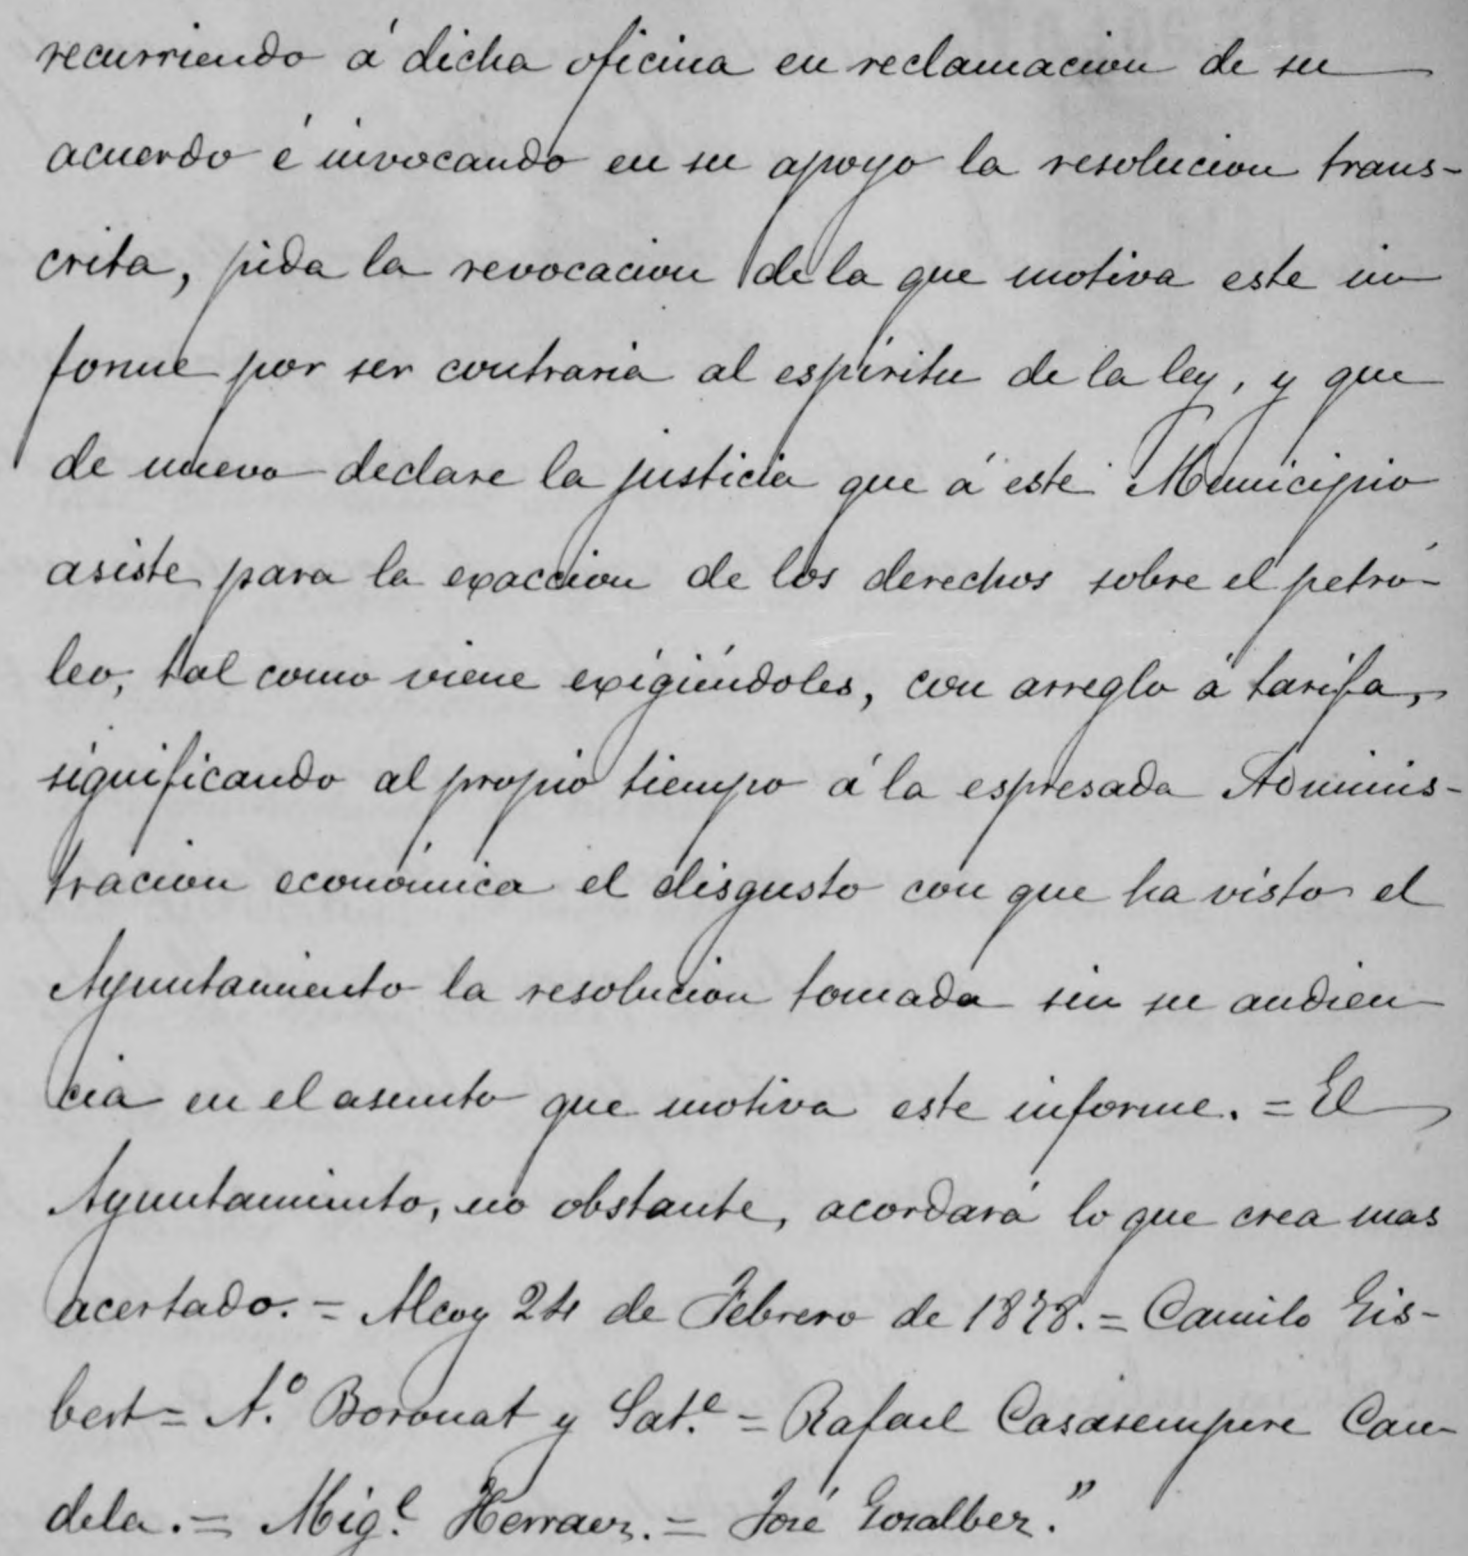 recurriendo á dicha oficina en reclamacion de su
acuerdo é invocando en su apoyo la resolucion trans-
crita, pida la revocacion de la que motiva este in
forme por ser contraria al espíritu de la ley, y que
de nuevo declare la justicia que á este Municipio
asiste para la exaccion de los derechos sobre el petró-
leo, tal como viene exigiéndoles, con arreglo á tarifa,
significando al propio tiempo á la espresada Adminis-
tracion económica el disgusto con que ha visto el
Ayuntamiento la resolucion tomada sin su audien
cia en el asunto que motiva este informe. = El
Ayuntamiento, no obstante, acordará lo que crea mas
acertado. = Alcoy 24 de Febrero de 1878. = Camilo Gis-
bert = A.º Boronat y Sat.e = Rafael Casasempere Can-
dela. = Mig.l Herraez. = José Gozalbez."